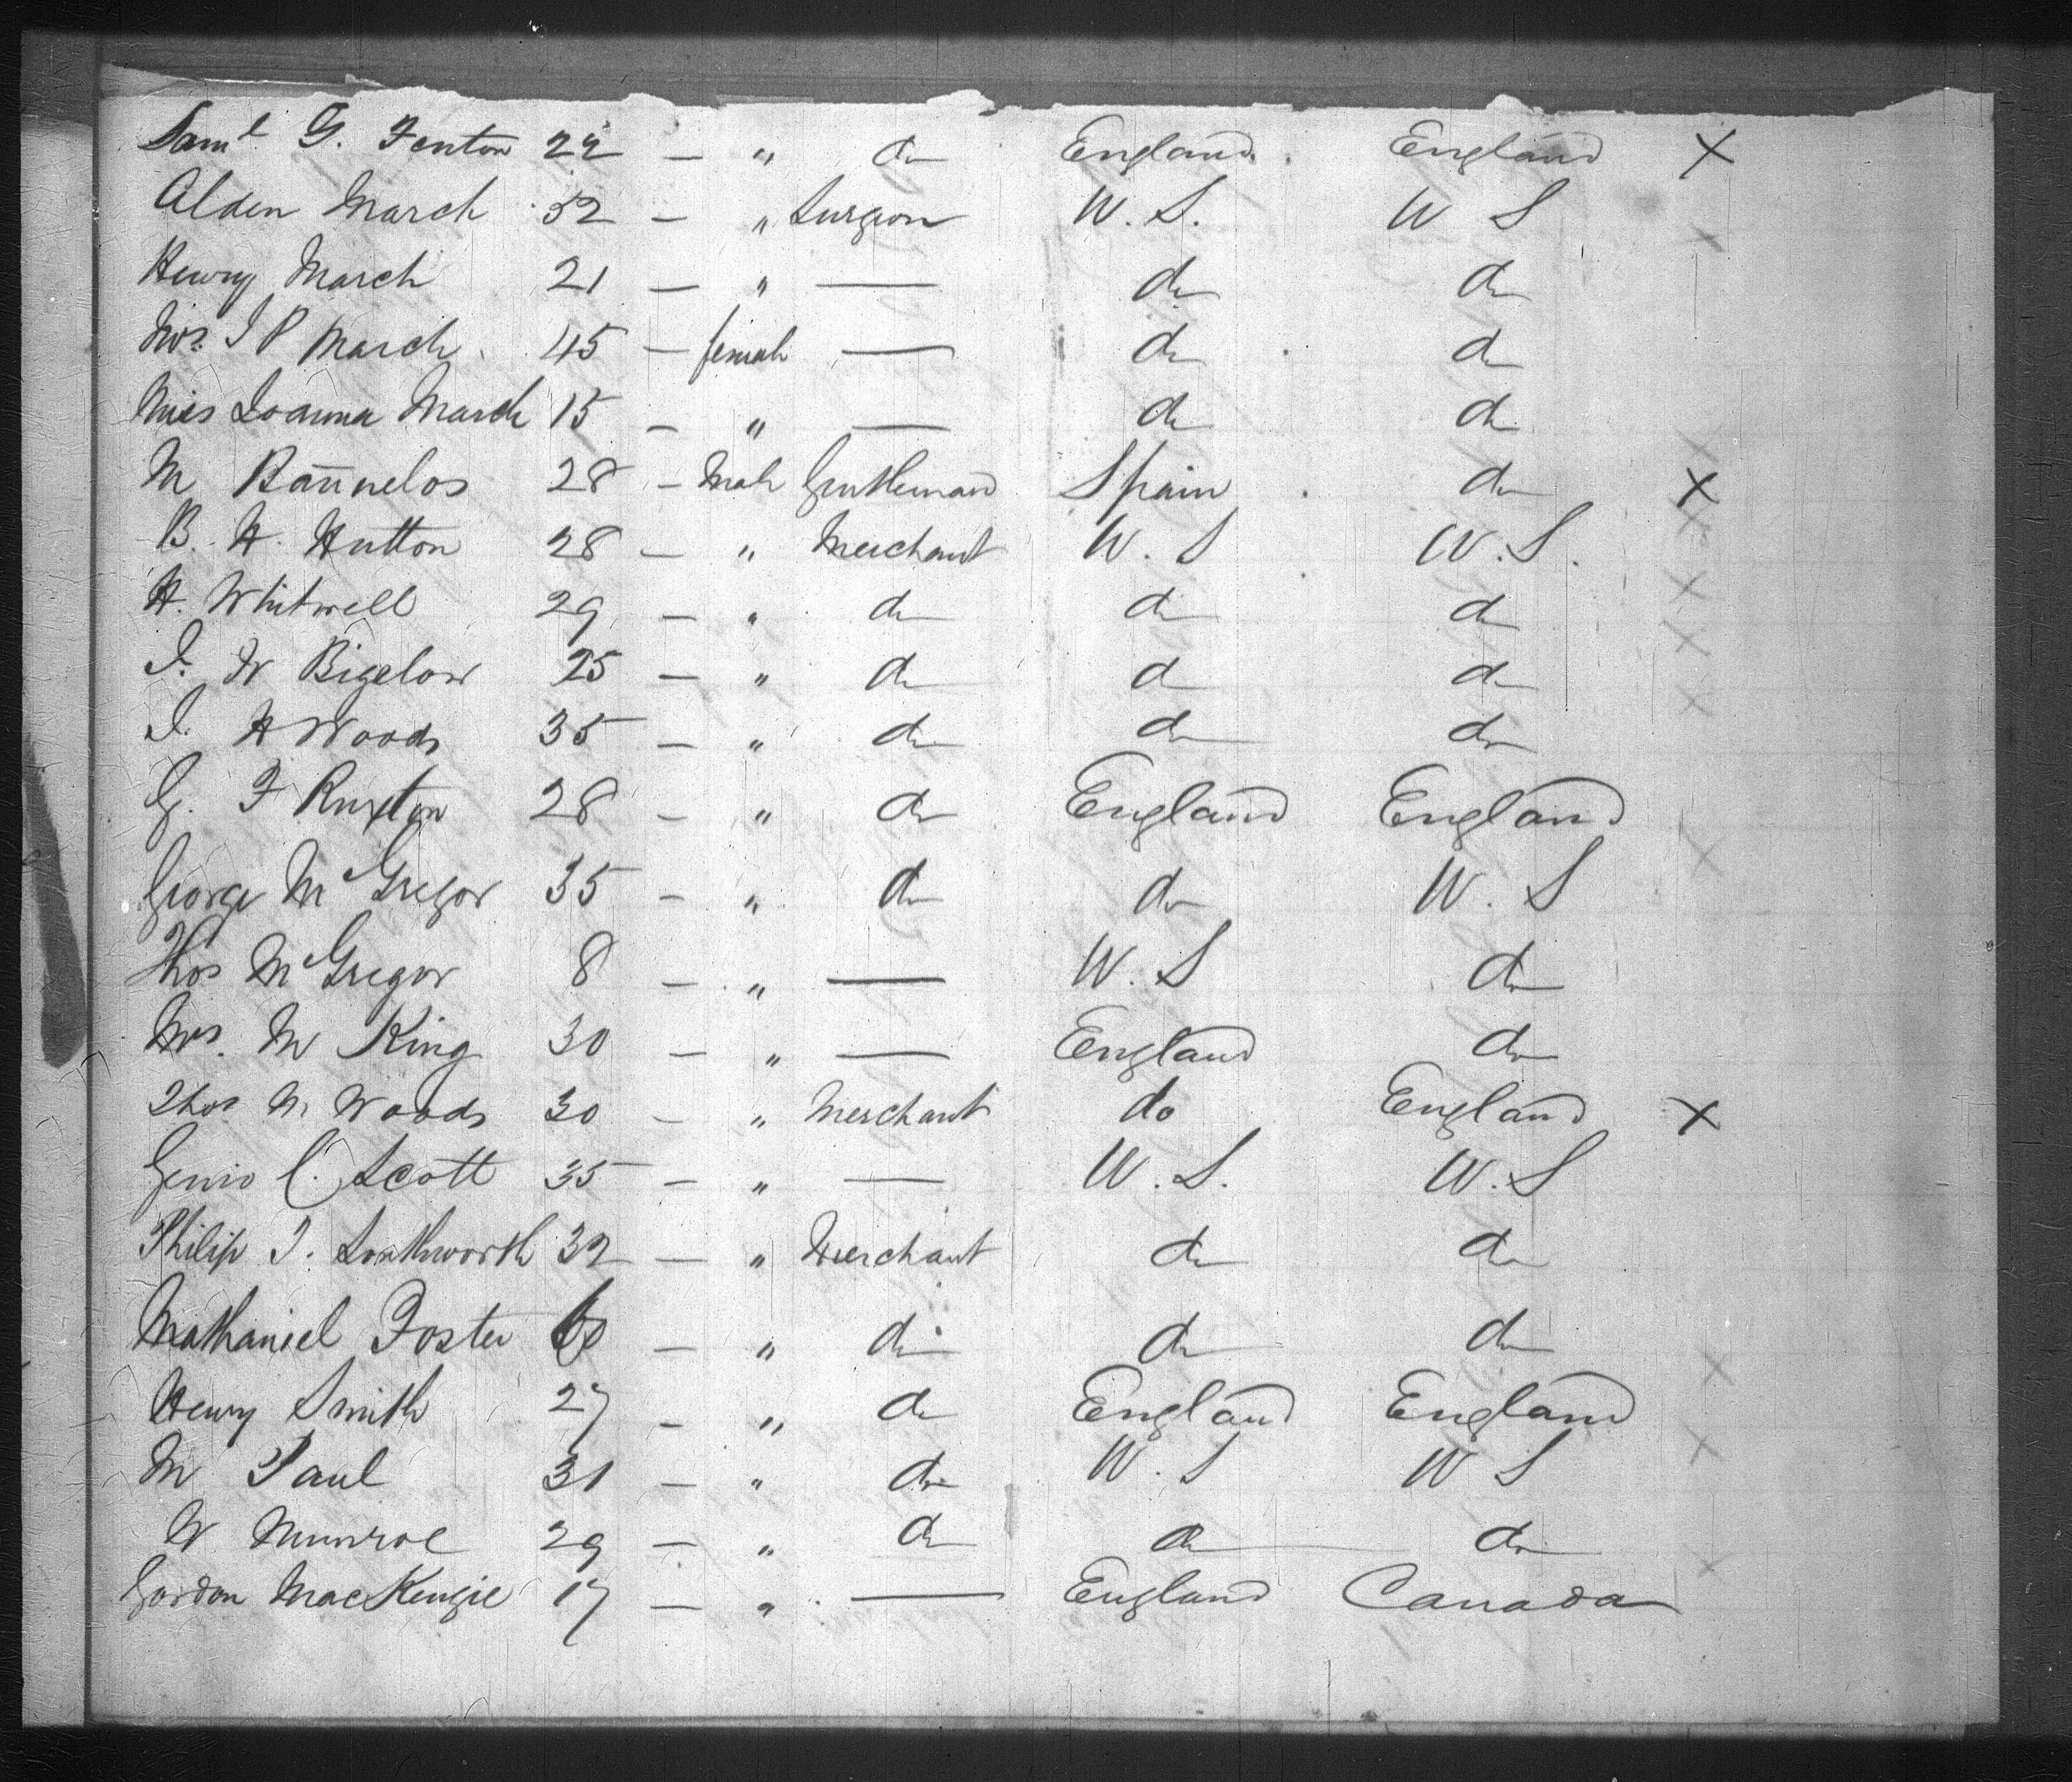 Saml G. Fenton 22 — " do England. England X
Alden March 52 — " Surgeon W. S. W S
Henry March 21 — " — do do
Mrs. J P March 45 — female — do do
Miss Joanna March 15 — " — do do
M Bañuelos 28 — Male Gentleman Spain do X
B. H. Hutton 28 — " Merchant W. S W. S.
H. Whitwell 29 — " do do do
J. W Bigelow 25 — " do do do
J. H Woods 35 — " do do do
G. F Ruxton 28 — " do England England
George McGregor 35 — " do do W. S
Thos McGregor 8 — " — W. S do
Mrs. M King 30 — " — England do
Thos M Woods 30 — " Merchant do England X
Genio C. Scott 35 — " — W. S. W. S
Philip J. Southworth 32 — " Merchant do do
Nathaniel Foster 60 — " do do do
Henry Smith 27 — " do England England
M Paul 31 — " do W. S W S
W Munroe 29 — " do do do
Gordon MacKenzie 17 — " — England Canada